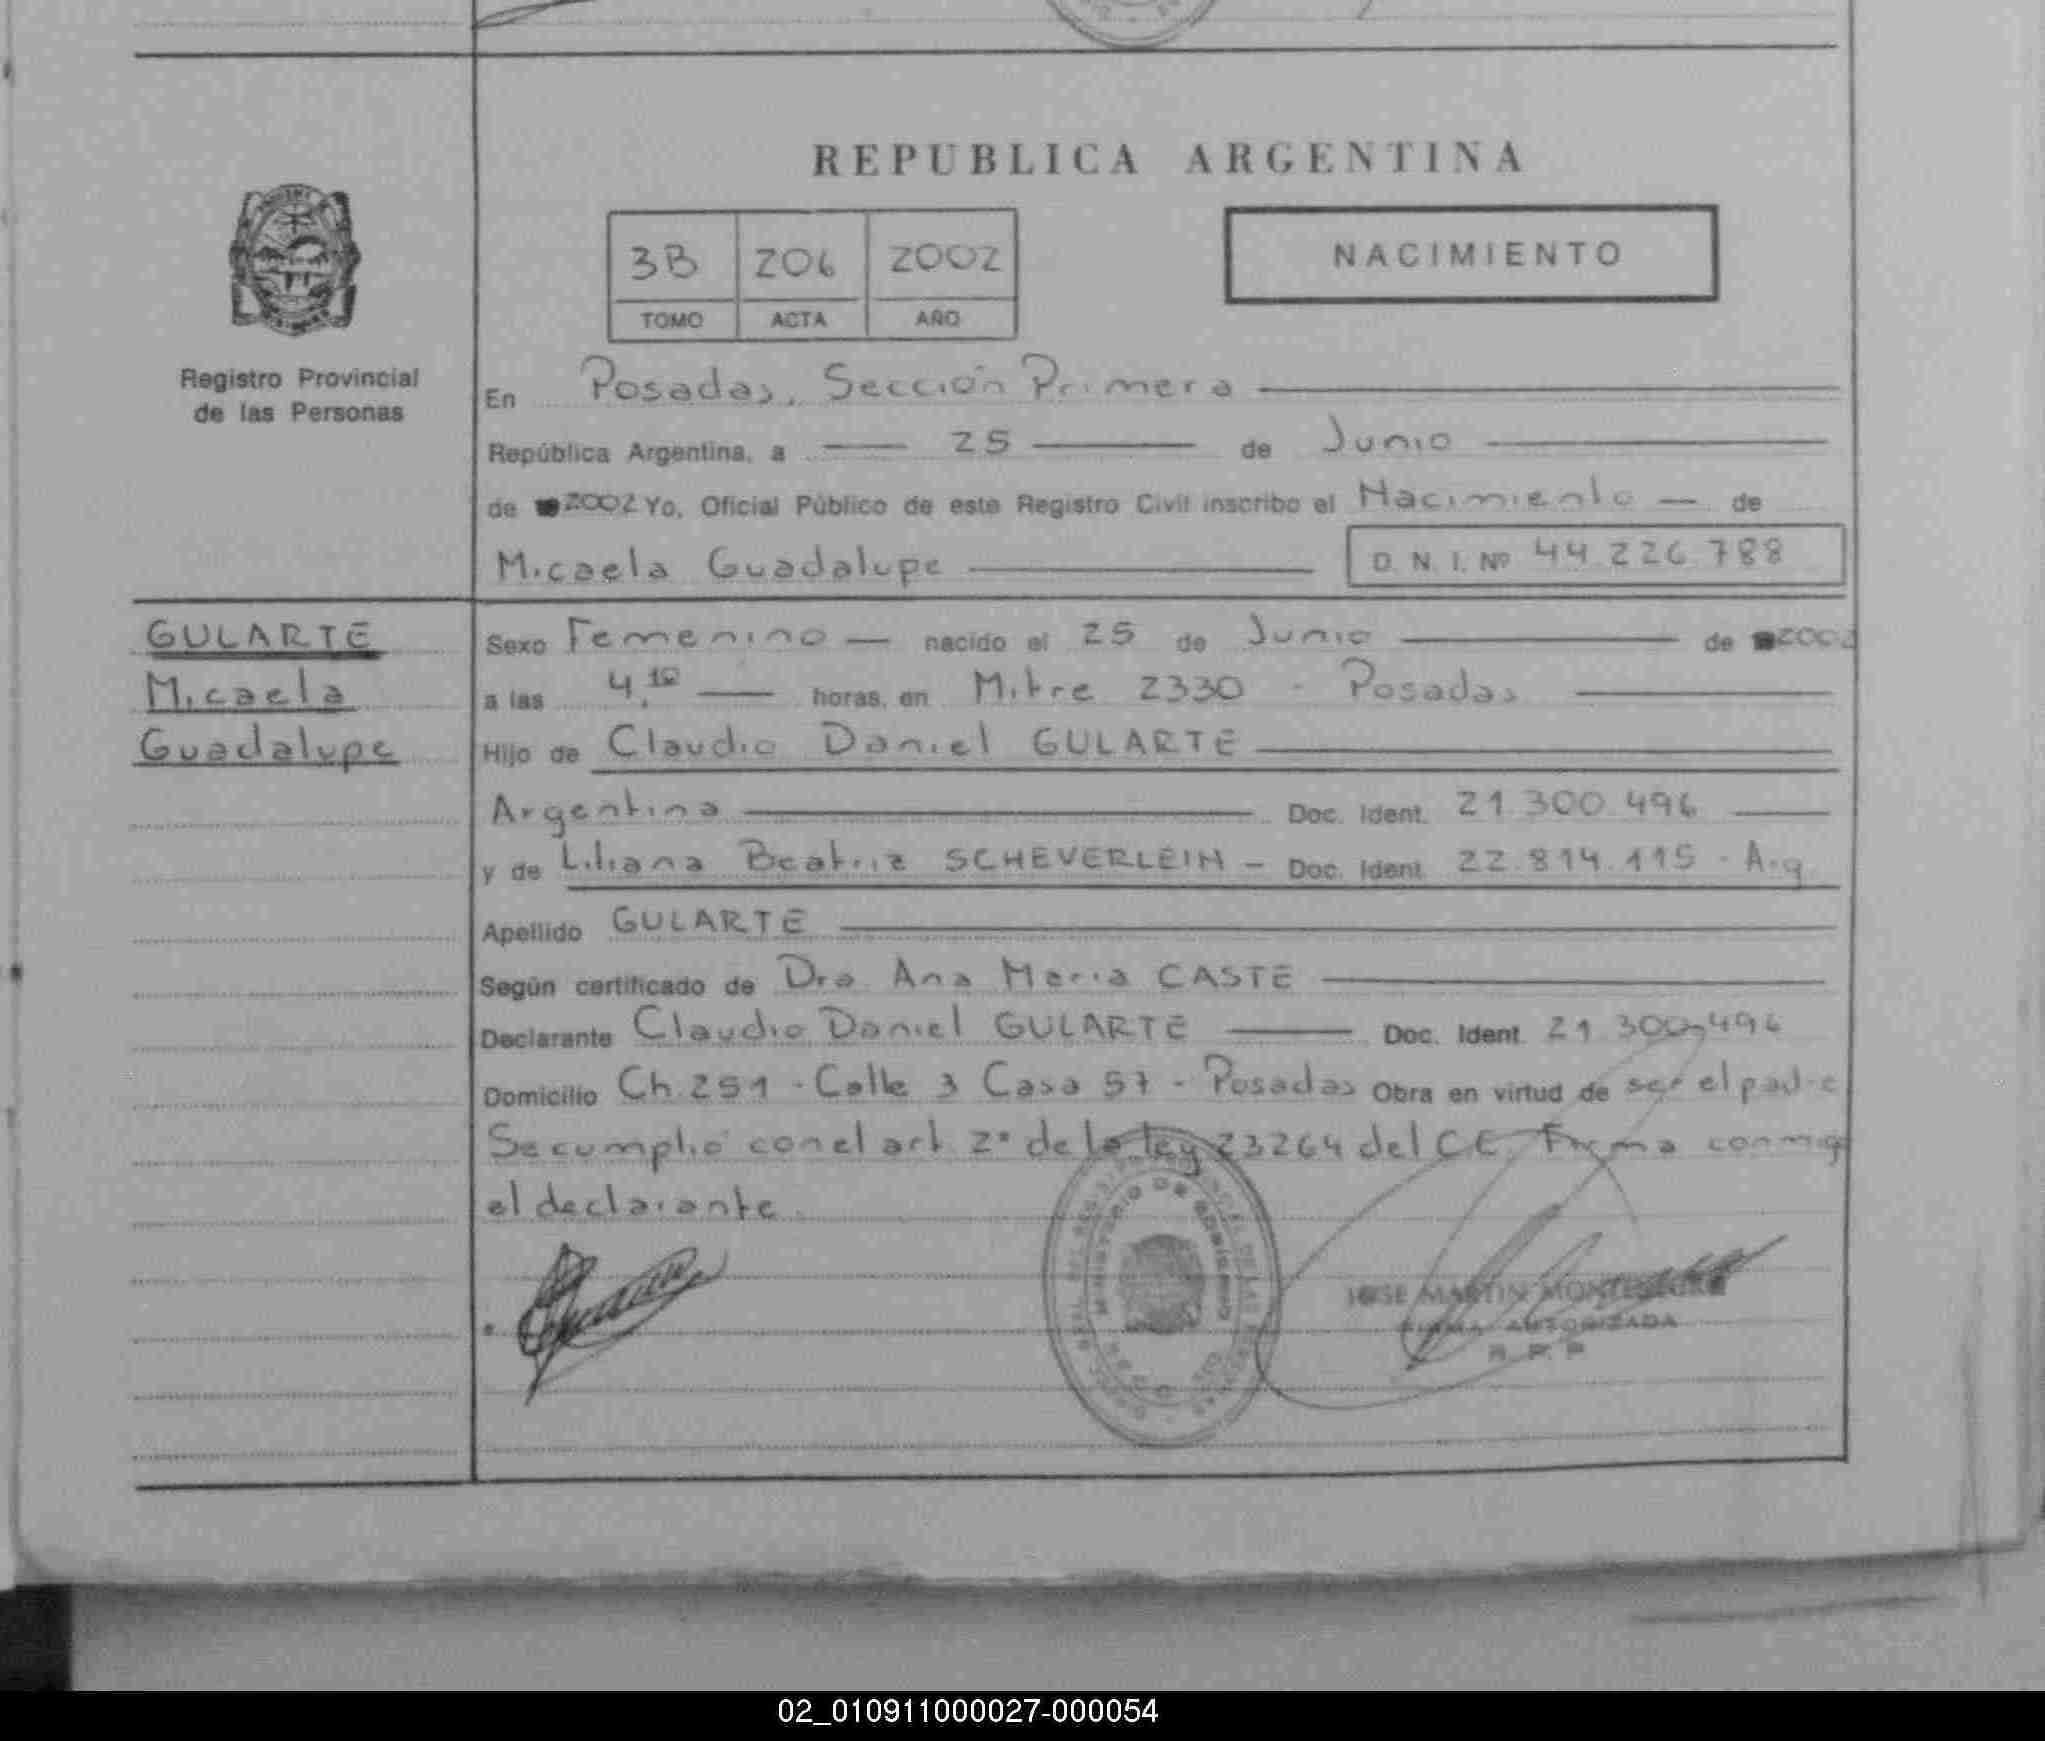 REPUBLICA ARGENTINA
3B 206 2002
TOMO ACTA AÑO
NACIMIENTO
Registro Provincial
de las Personas
En Posadas, Sección Primera
República Argentina, a 25 de Junio
de 2002 Yo, Oficial Público de este Registro Civil inscribo el Nacimiento de
Micaela Guadalupe D. N. I. Nº 44.226.788
GULARTE
Micaela
Guadalupe
Sexo Femenino nacido el 25 de Junio de 2002
a las 4,10 horas, en Mitre 2330 - Posadas
Hijo de Claudio Daniel GULARTE
Argentina Doc. Ident. 21.300.496
y de Liliana Beatriz SCHEVERLEIN - Doc. Ident. 22.814.115 - Arg
Apellido GULARTE
Según certificado de Dra. Ana Maria CASTE
Declarante Claudio Daniel GULARTE Doc. Ident. 21.300.496
Domicilio Ch. 251 - Calle 3 Casa 57 - Posadas Obra en virtud de ser el padre
Se cumplió con el art. 2º de la ley 23264 del CC. Firma conmigo
el declarante.
MINISTERIO DE GOBIERNO
JOSE MARTIN
FIRMA AUTORIZADA
R. P. P.
02_010911000027-000054